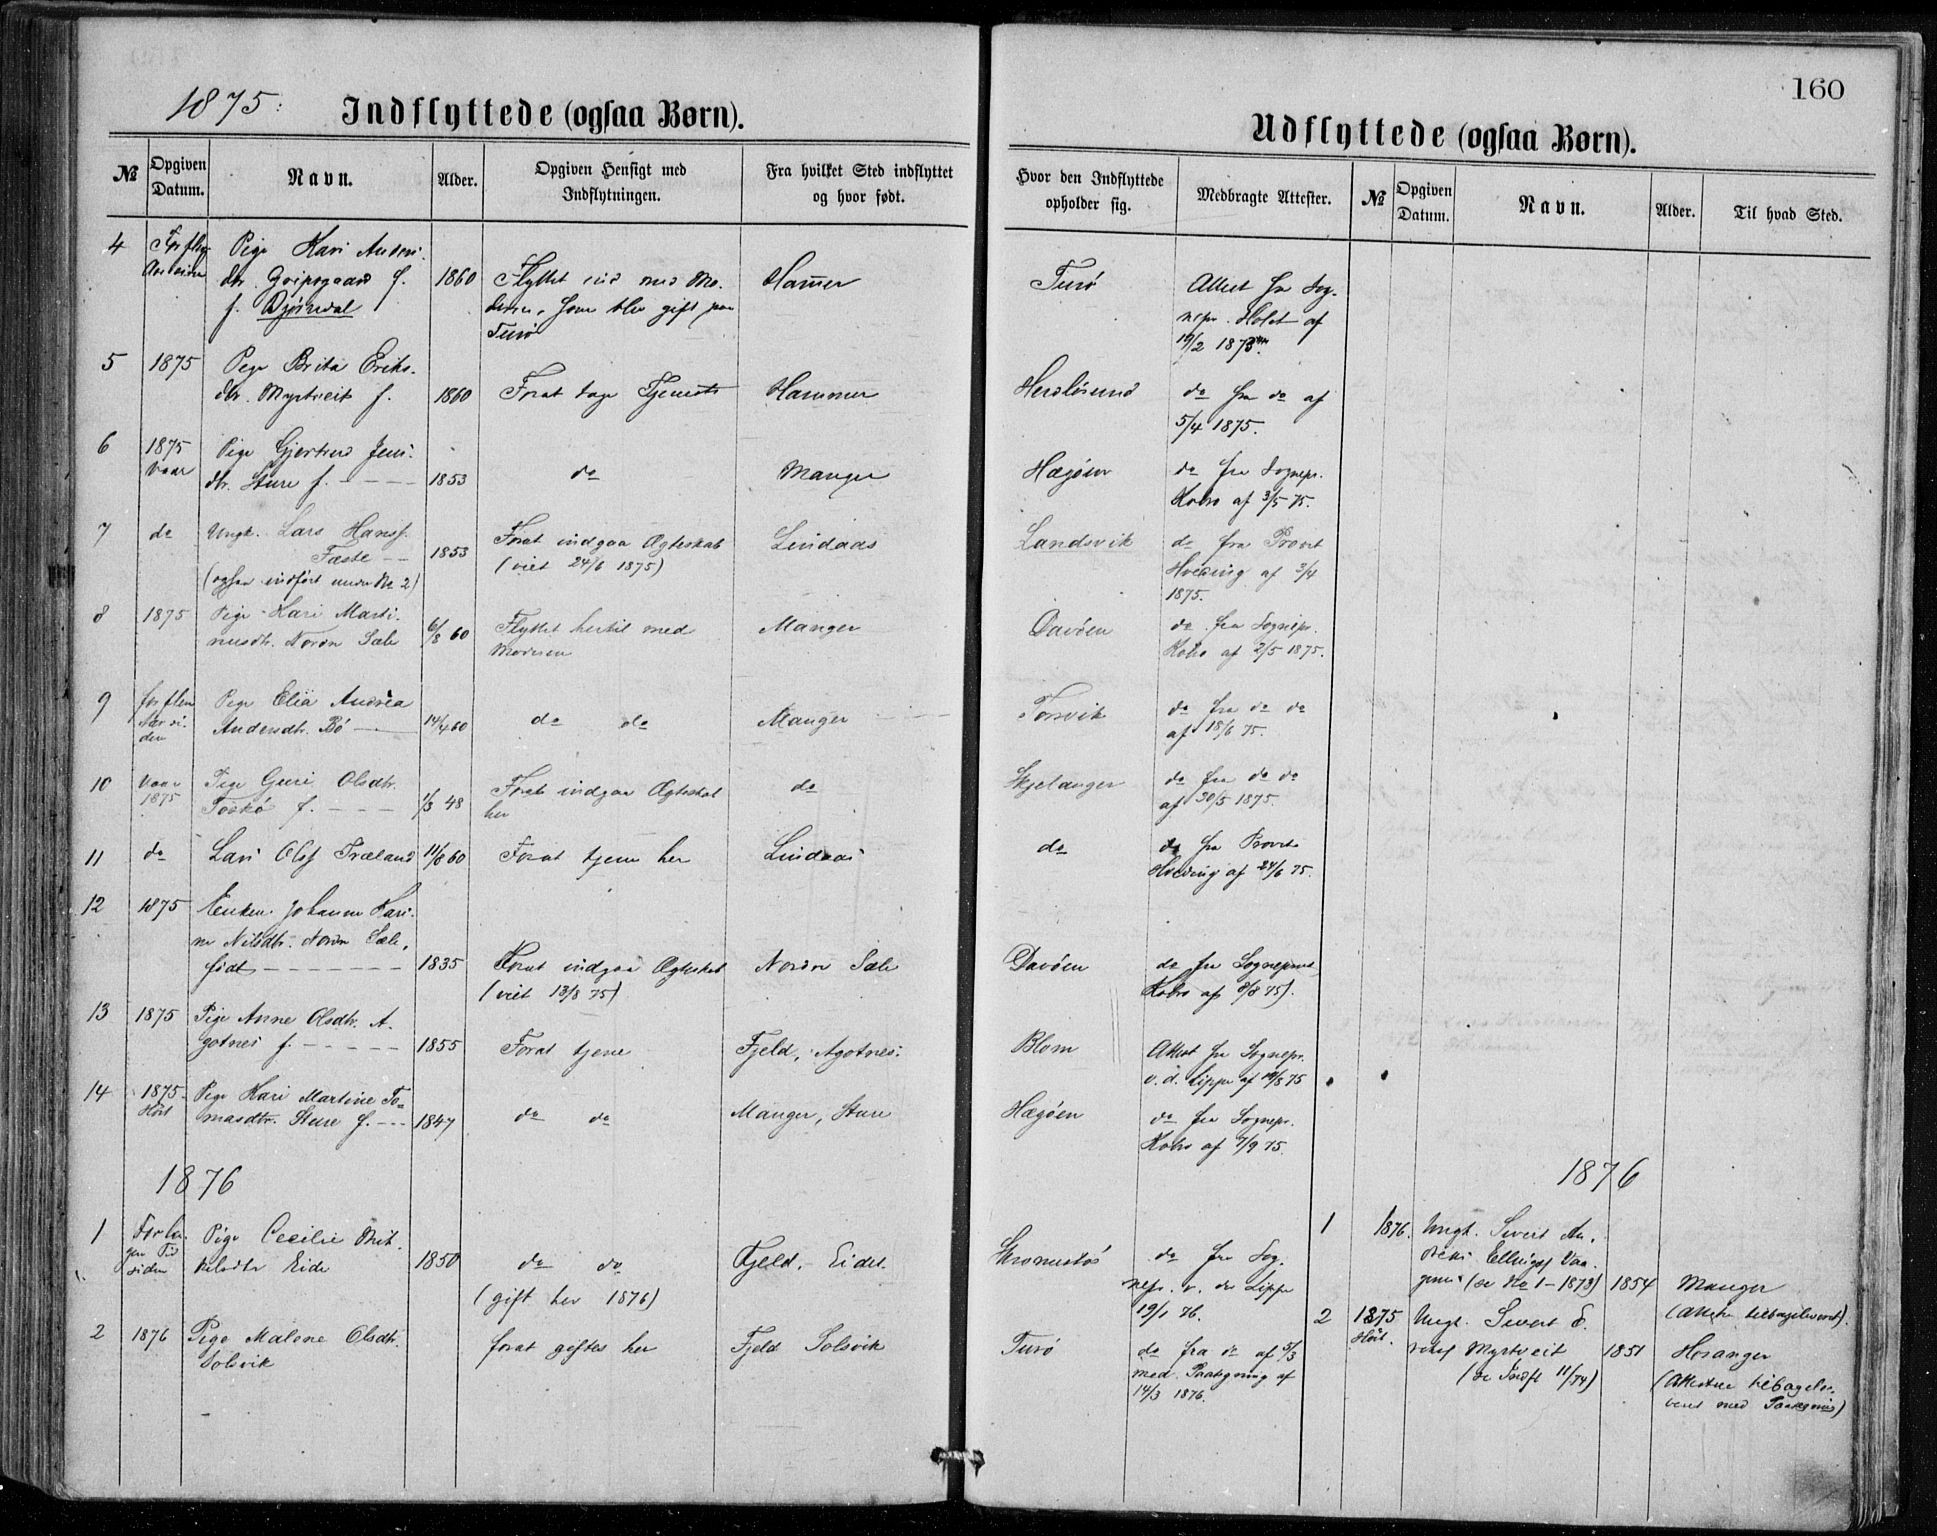 160
1875:
Indflyttede (ogsaa Børn).
Udflyttede (ogsaa Børn).
№
Opgiven Datum.
Navn.
Alder.
Opgiven Hensigt med Indflytningen.
Fra hvilket Sted indflyttet og hvor født.
Hvor den Indflyttede opholder sig.
Medbragte Attester.
№
Opgiven Datum.
Navn.
Alder.
Til hvad Sted.
4
Pige Kari Anders
dtr. f.
f.
1860
Flyttet ind med Mo-
deren, som blev gift paa
Turø
Hamer
Turø
Attest fra Sog-
nepr. Holst af
19/2
5 1875
Pige Brita Eriks-
dtr. Myrtveit f.
1860
Forat tage Tjeneste
Hammer
Herdløsund
do fra do af
5/4 1875.
6 1875
Vaar
Pige Gjertrud Jens-
dtr. Sture f. - - - -
1853
do
Manger
Hægøen
do fra Sognepr.
Kobro af 3/5 75.
7 do
Ungk. Lars Hansf.
Fæste - -
(ogsaa indført under No 2)
1853
Forat indgaa Ægteskab
(viet 24/6 1875)
Lindaas
Landsvik
do fra Provst
Hvoding af 2/4
1875.
8 1875
Pige Kari Marti-
nusdtr. Nordn Sæle
6/8 60
Flyttet hertil med
Moderen
Manger
Davøen
do fra Sognepr.
Kobro af 2/5 1875.
9
Pige Elia Andrea
Andersdtr. Bø
14/4 60
do do
Manger
Torsvik
do fra do do
af 18/6 75.
10 Vaar
1875
Pige Guri Olsdtr.
Toskø f. - - -
1/3 48
Forat indgaa Ægteskab
her
do
Skjelanger
do fra do do
af 30/5 1875.
11 do
Lars Olsf Træland
11/8 60
Forat tjene her
Lindaas
do
do fra Provst
Hvoding af 24/6 75.
12 1875
Enken Johanne Kari-
ne Nilsdtr. Nordn Sæle,
født - - - - - - -
1835
Forat indgaa Ægteskab
(viet 13/8 75)
Nordn Sæle
Davøen
do fra Sogneprest
Kobro af 8/8 75).
13 1875
Pige Anne Olsdtr. A-
gotnes f. - - - - -
1855
Forat tjene
Fjeld, Agotnes.
Blom
Attest fra Sognepr.
v. d. Lippe af 19/8 75
14 1875
Høst
Pige Kari Martine To-
masdtr. Sture f. - - -
1847
do do
Manger, Sture
Hægøen
do fra Sognepr.
Kobro af 7/9 75.
1876
1 Forla-
gen Tid
siden
Pige Cecilie Mik-
kelsdtr Eide
1850
do do
(gift her 1876)
Fjeld, Eidet
do fra Sog-
nepr. v. der Lippe
19/1 76.
2 1876
Pige Malene Olsdtr.
Solsvik
forat giftes her
Fjeld Solsvik
Turø
do fra do af 3/3
med Paategning af
14/3 1876.
1876
1 1876.
Ungk. Sivert An-
dreas Ellingsf Vaa-
genes (se No 1 - 1873)
1854
Manger
(Attesten tilbageleveret).
2 1875
Høst.
Ungk. Sivert E-
riksf Myrtveit
(se Indfl 11/74)
1851
Hosanger
(Attesten tilbagele-
veret med Paategning)